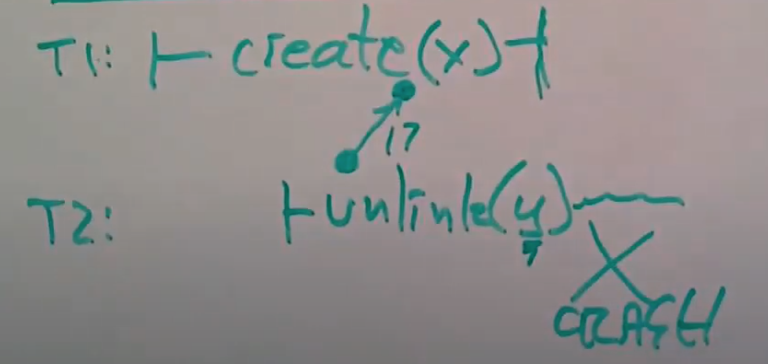 T1: ⊢ create(x) ⊣
17
T2: ⊢ unlink(y)
CRASH